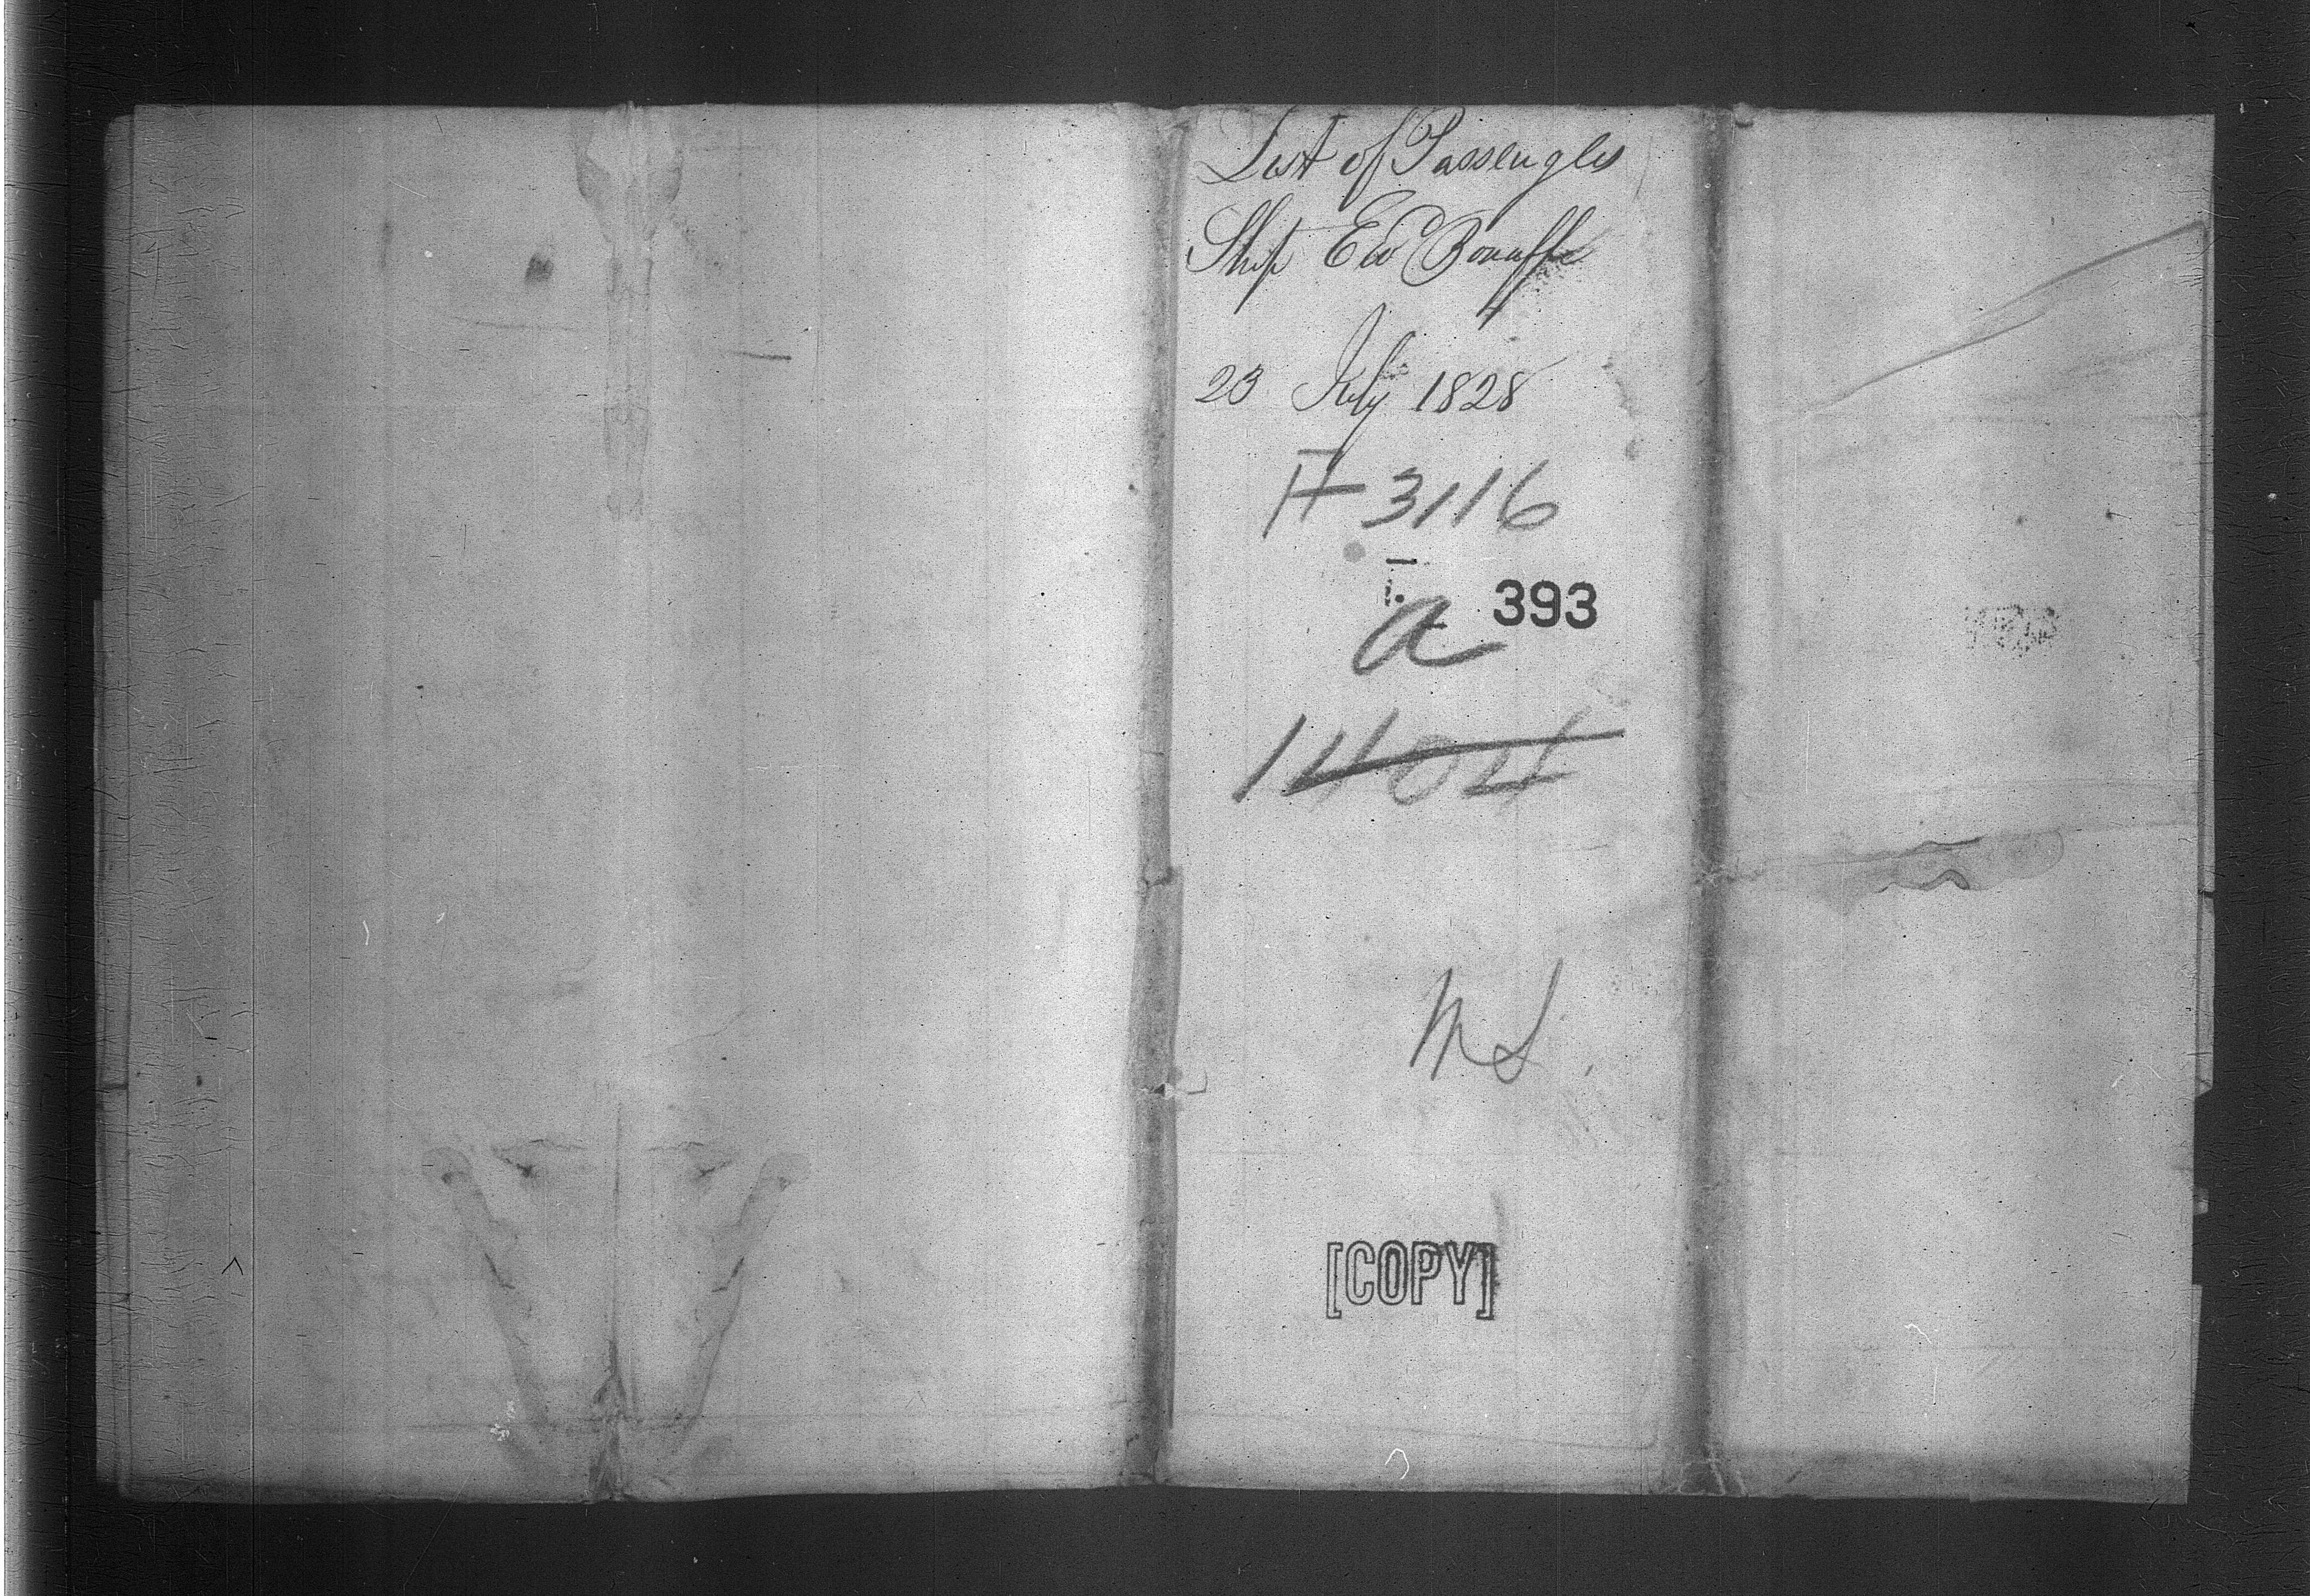 List of Passengers
Ship Edd Bonaffe
23 July 1828
F 3116
393
a
1404
M S.
[COPY]